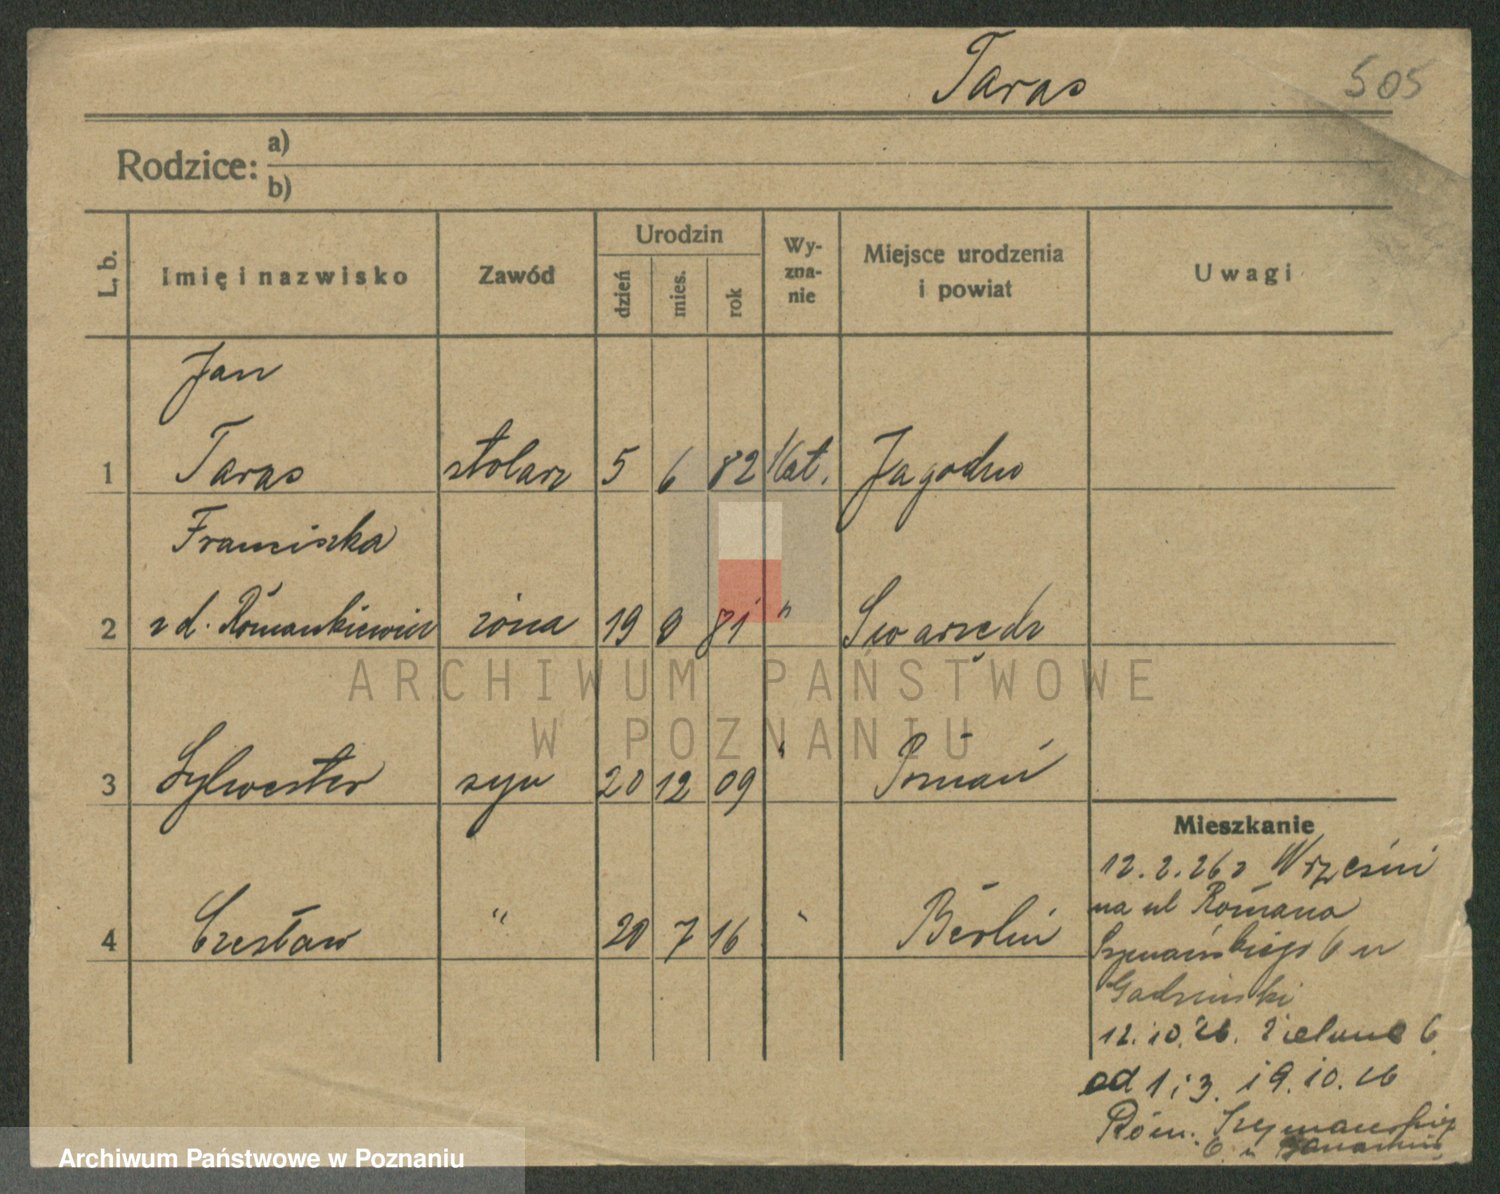 Taras
505
Rodzice: a)
b)
L. b.
Imię i nazwisko
Zawód
Urodzin
dzień
mies.
rok
Wy-
zna-
nie
Miejsce urodzenia
i powiat
Uwagi
Jan
1 Taras stolarz 5 6 82 Kat. Jagodno
Franciszka
2 z d. Romankiewicz żona 19 81 " Swarzędz
3 Sylwester syn 20 12 09 " Poznań
4 Czesław " 20 7 16 " Berlin
Mieszkanie
12.2.26 z Wrześni
na ul Romana
Szymańskiego 6 u
12.10.26. Zielone 6
od 1 i 3. 19.10.26
Rom. Szymańskiego
6. u
ARCHIWUM PAŃSTWOWE
W POZNANIU
Archiwum Państwowe w Poznaniu